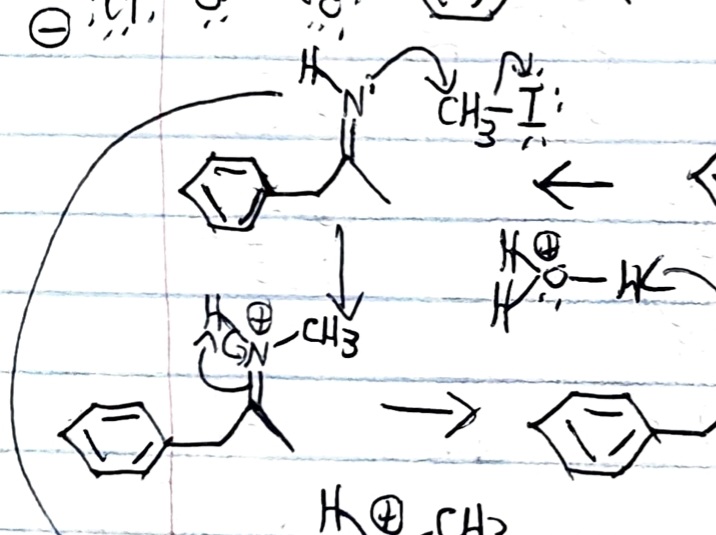 ⊖ :Cl
H
N: CH3—I:
H ⊕
O—H
H
H ⊕
N—CH3
H ⊕ CH3